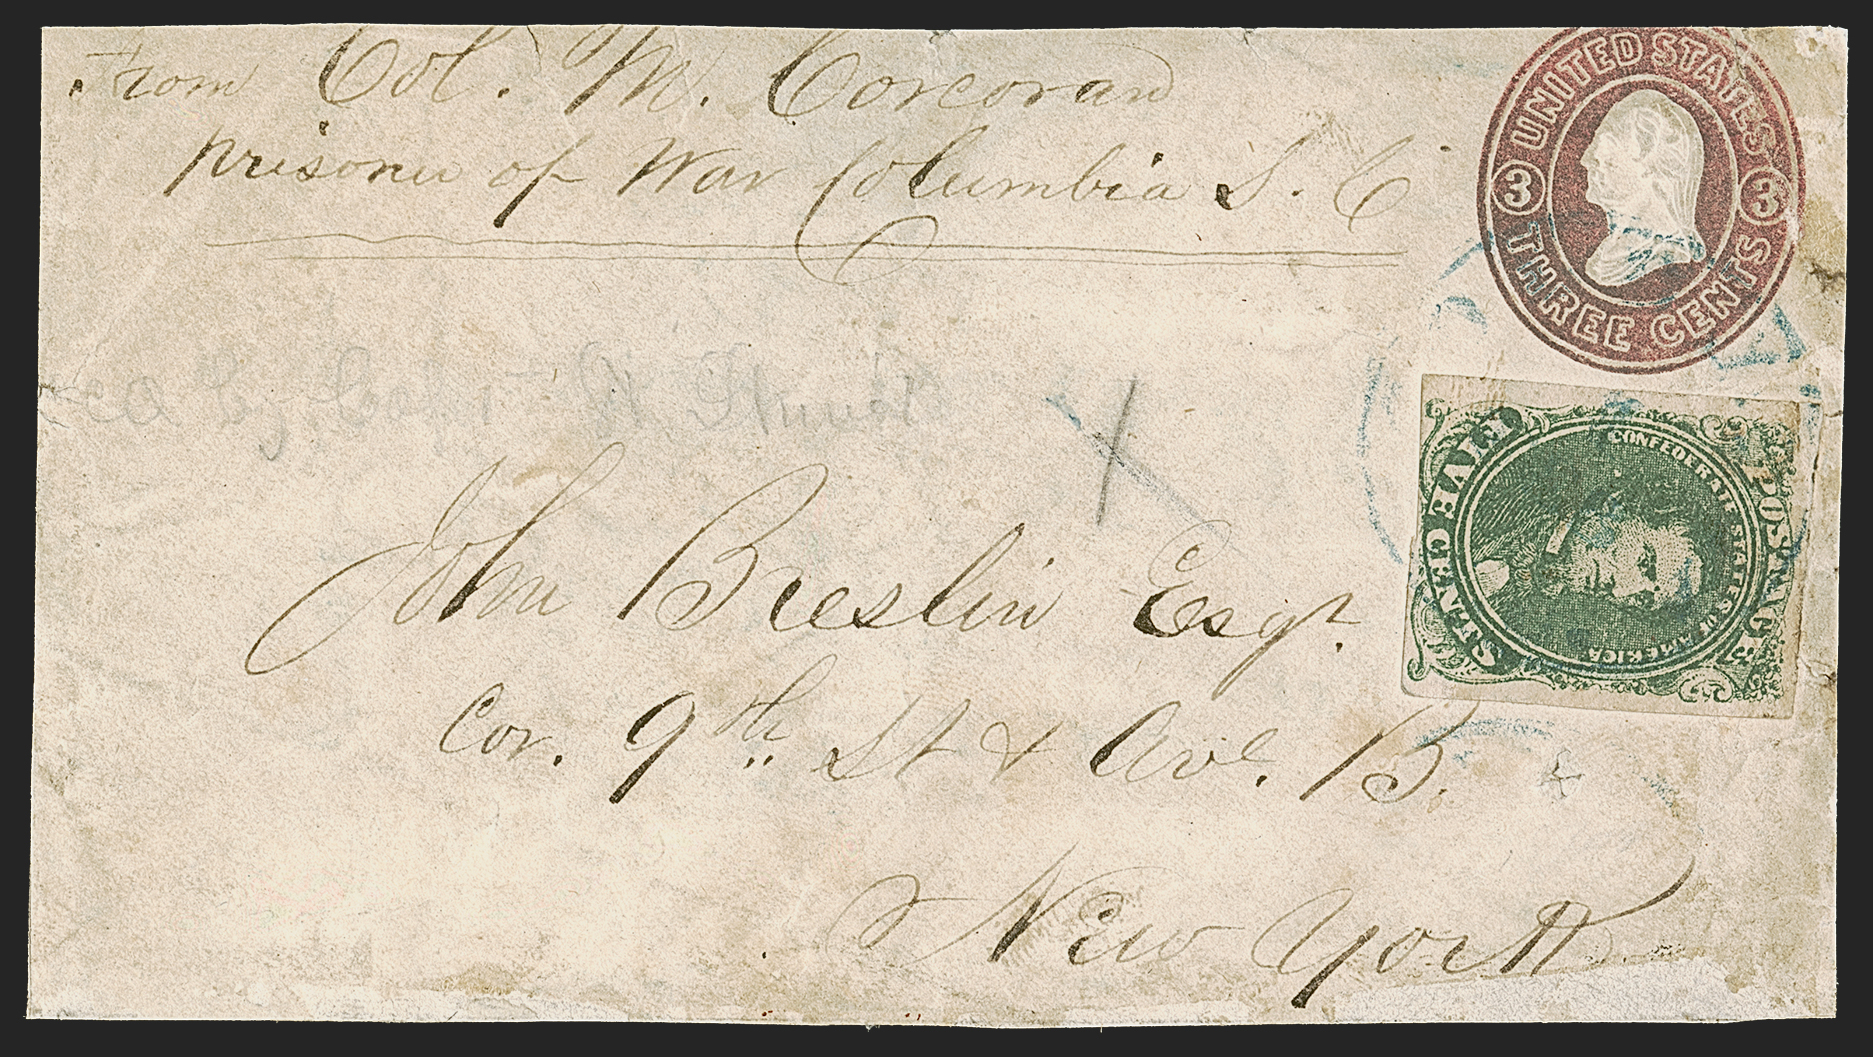 From Col. M. Corcoran
prisoner of War Columbia S. C
UNITED STATES
3 3
THREE CENTS
POSTAGE
CONFEDERATE STATES OF AMERICA
FIVE CENTS
John Breslin Esqr.
Cor. 9th St & Ave. B.
New York